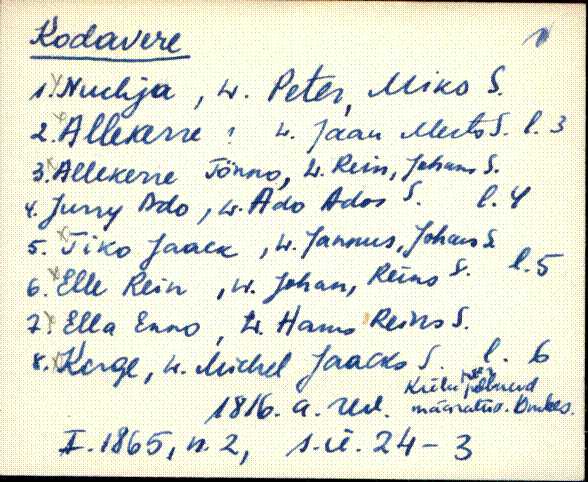 Kodavere
1. Nuchja, w. Peter, Miko S.
2. Allekerre : w. Jaan Merto S. l. 3
3. Allekerre Tönno, w. Rein, Johans S.
4. Jurry Ado, w. Ado Ados S. l. 4
5. Tiko Jaack, w. Jannus, Johans S.
l. 5
6. Elle Rein, w. Johan, Reins S.
7. Ella Enno, w. Hans Reins S.
8. Korge, w. Michel Jaacks S. l. 6
1816. a. rev. Küla
määratus.
II. 1865, n. 2, s.ü. 24-3